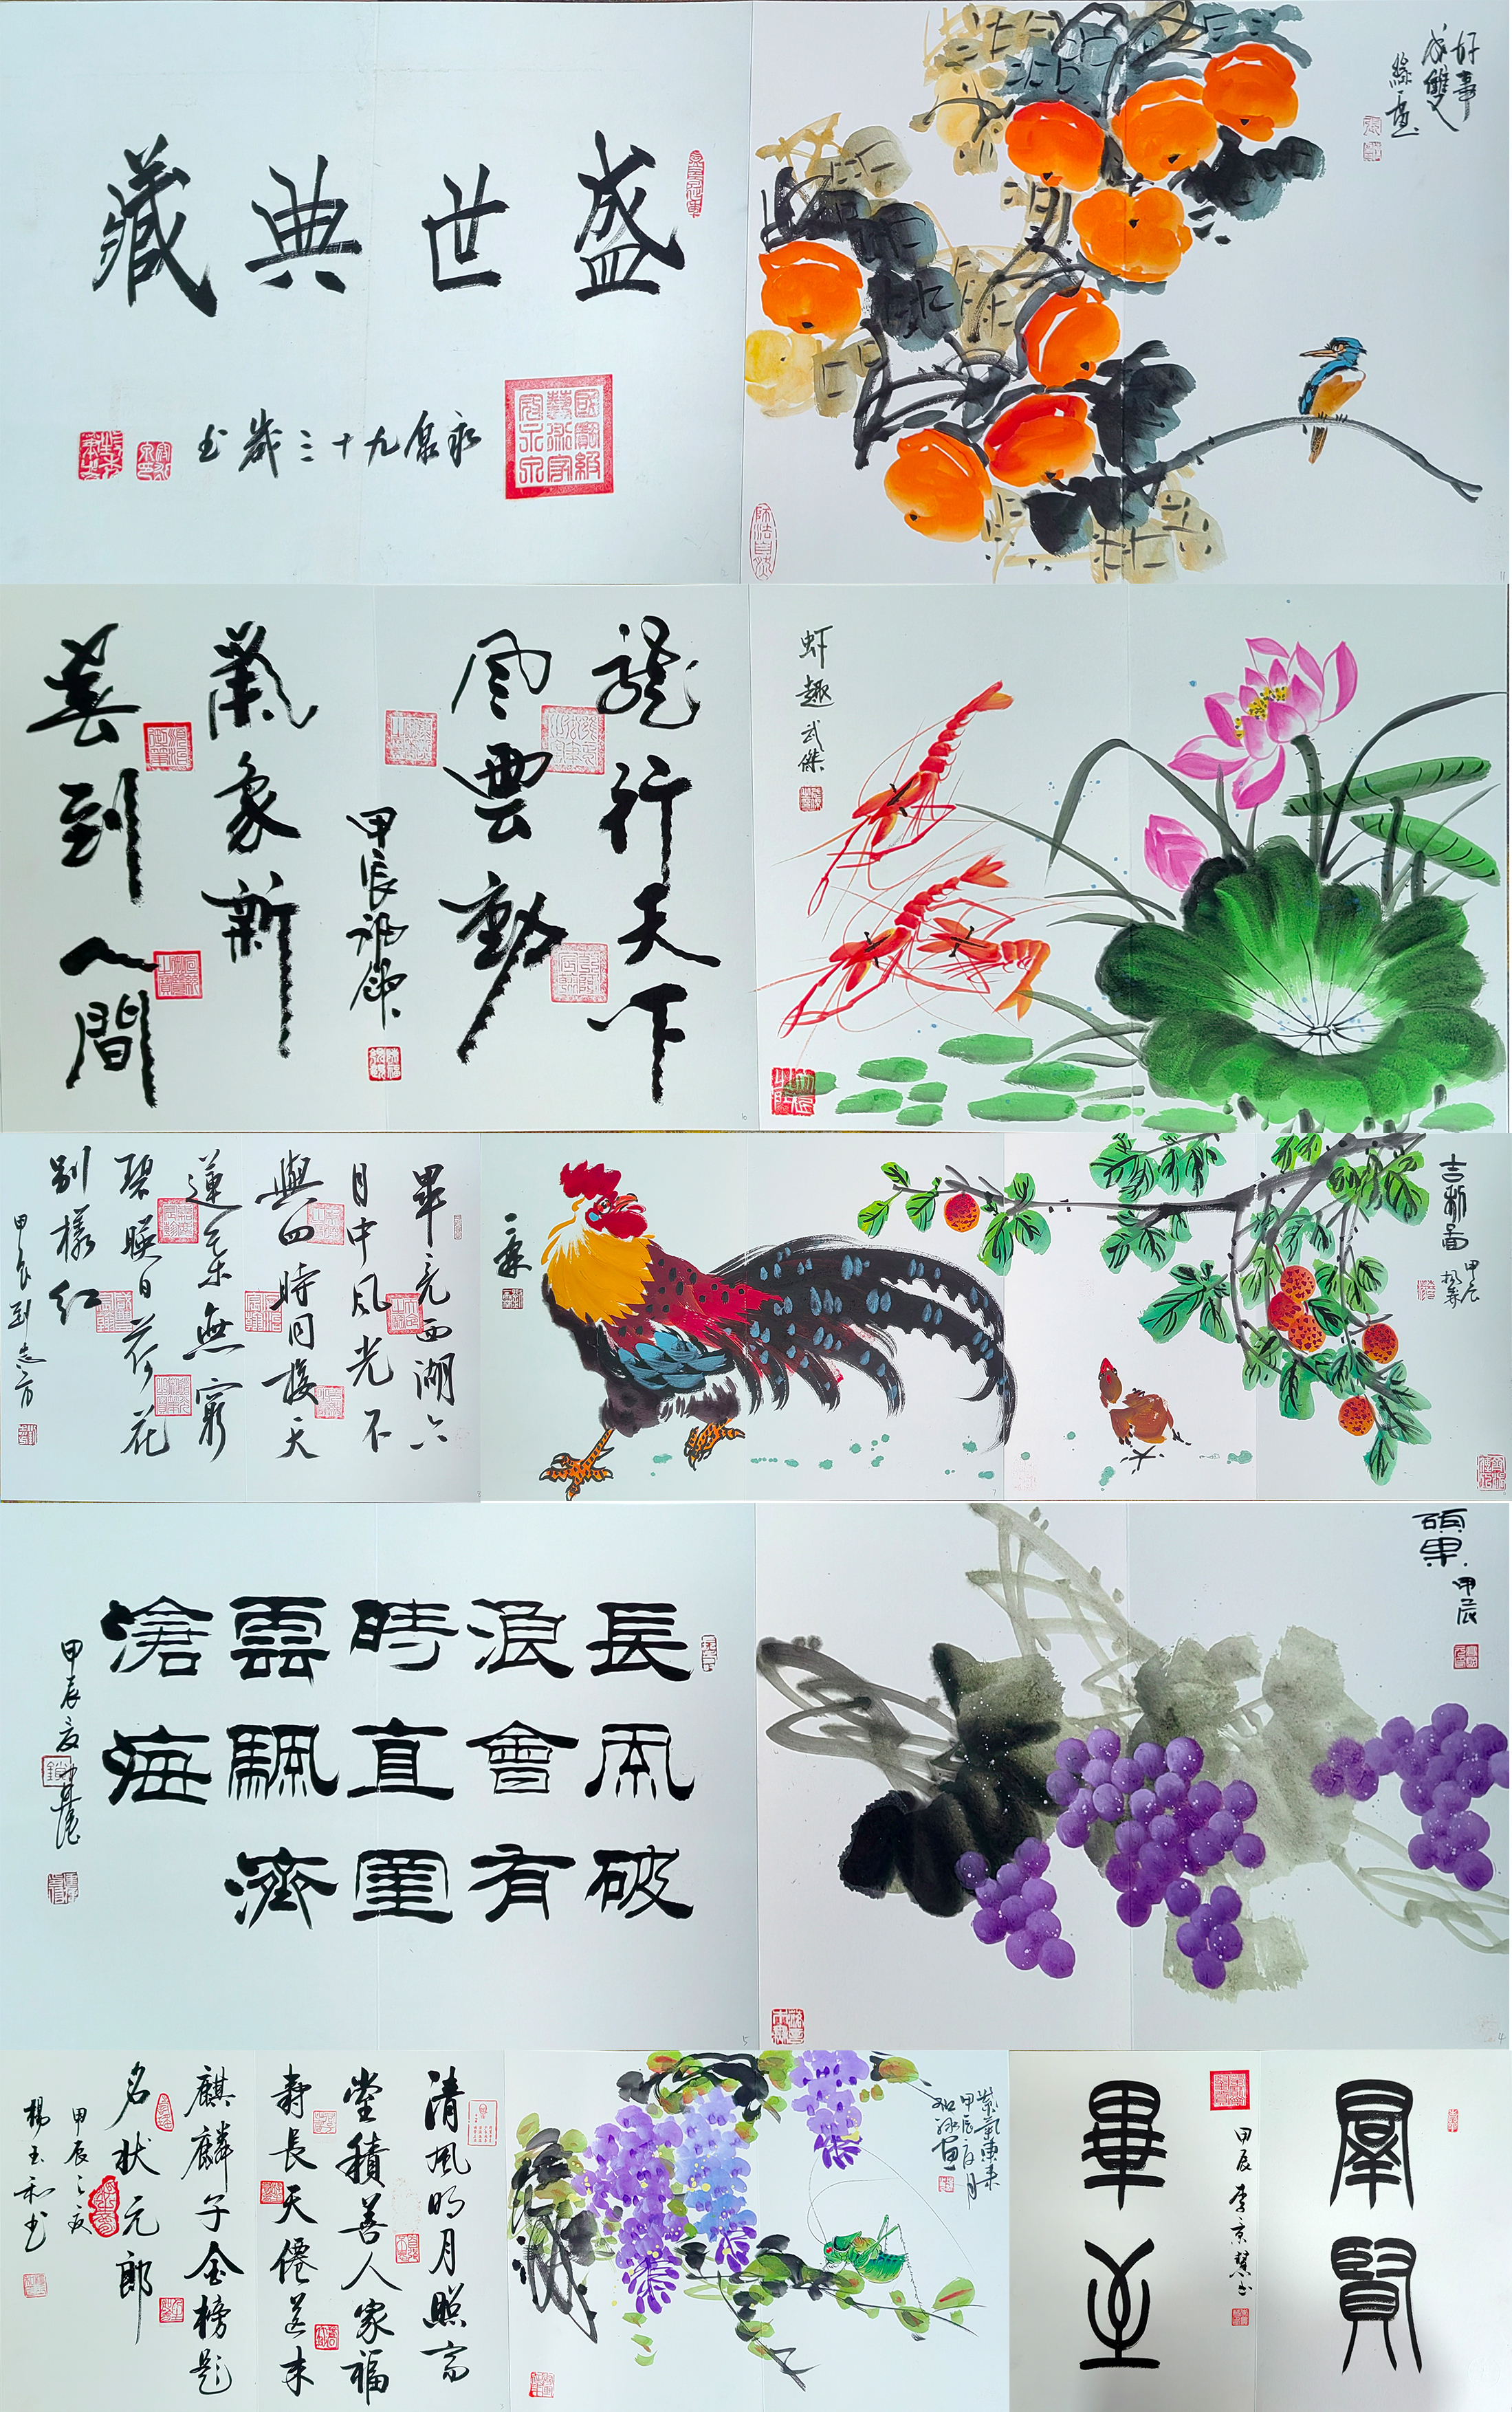 盛世典藏
永泉九十三岁书
好事
成雙
龍行天下
風雲動
甲辰
氣象新
喜到人間
虾趣 武傑
畢竟西湖六
月中風光不
與四時同接天
蓮葉無窮
碧映日荷花
別樣紅
甲辰 刘志方
吉祥圖
甲辰
長風破
浪會有
時直掛
雲帆濟
滄海
甲辰夏
碩果
甲辰
清風明月照高
堂積善人家福
壽長天僊送来
麒麟子金榜題
名状元郎
甲辰之夏
楊玉和书
紫氣東来
甲辰夏月
羣賢
畢至
甲辰 李京慧书